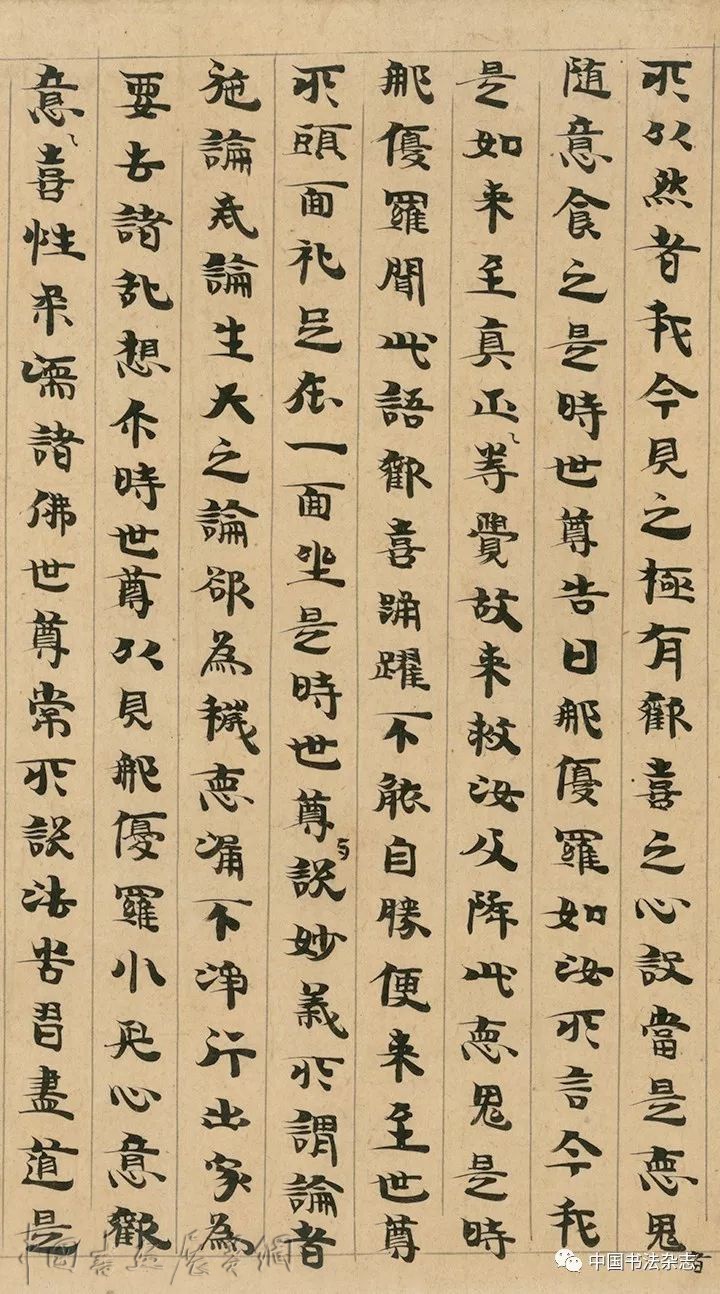 所以然者我今見之極有歡喜之心設當是惡鬼者
随意食之是時世尊告曰那優羅如汝所言今我
是如来至真正等覺故来救汝及降此惡鬼是時
那優羅聞此語歡喜踊躍不能自勝便来至世尊
所頭面礼足在一面坐是時世尊与說妙義所謂論者
施論戒論生天之論欲為穢惡漏不淨行出家為
要去諸乱想尒時世尊以見那優羅小兒心意歡
意喜性柔濡諸佛世尊常所說法苦習盡道是
中国书法杂志